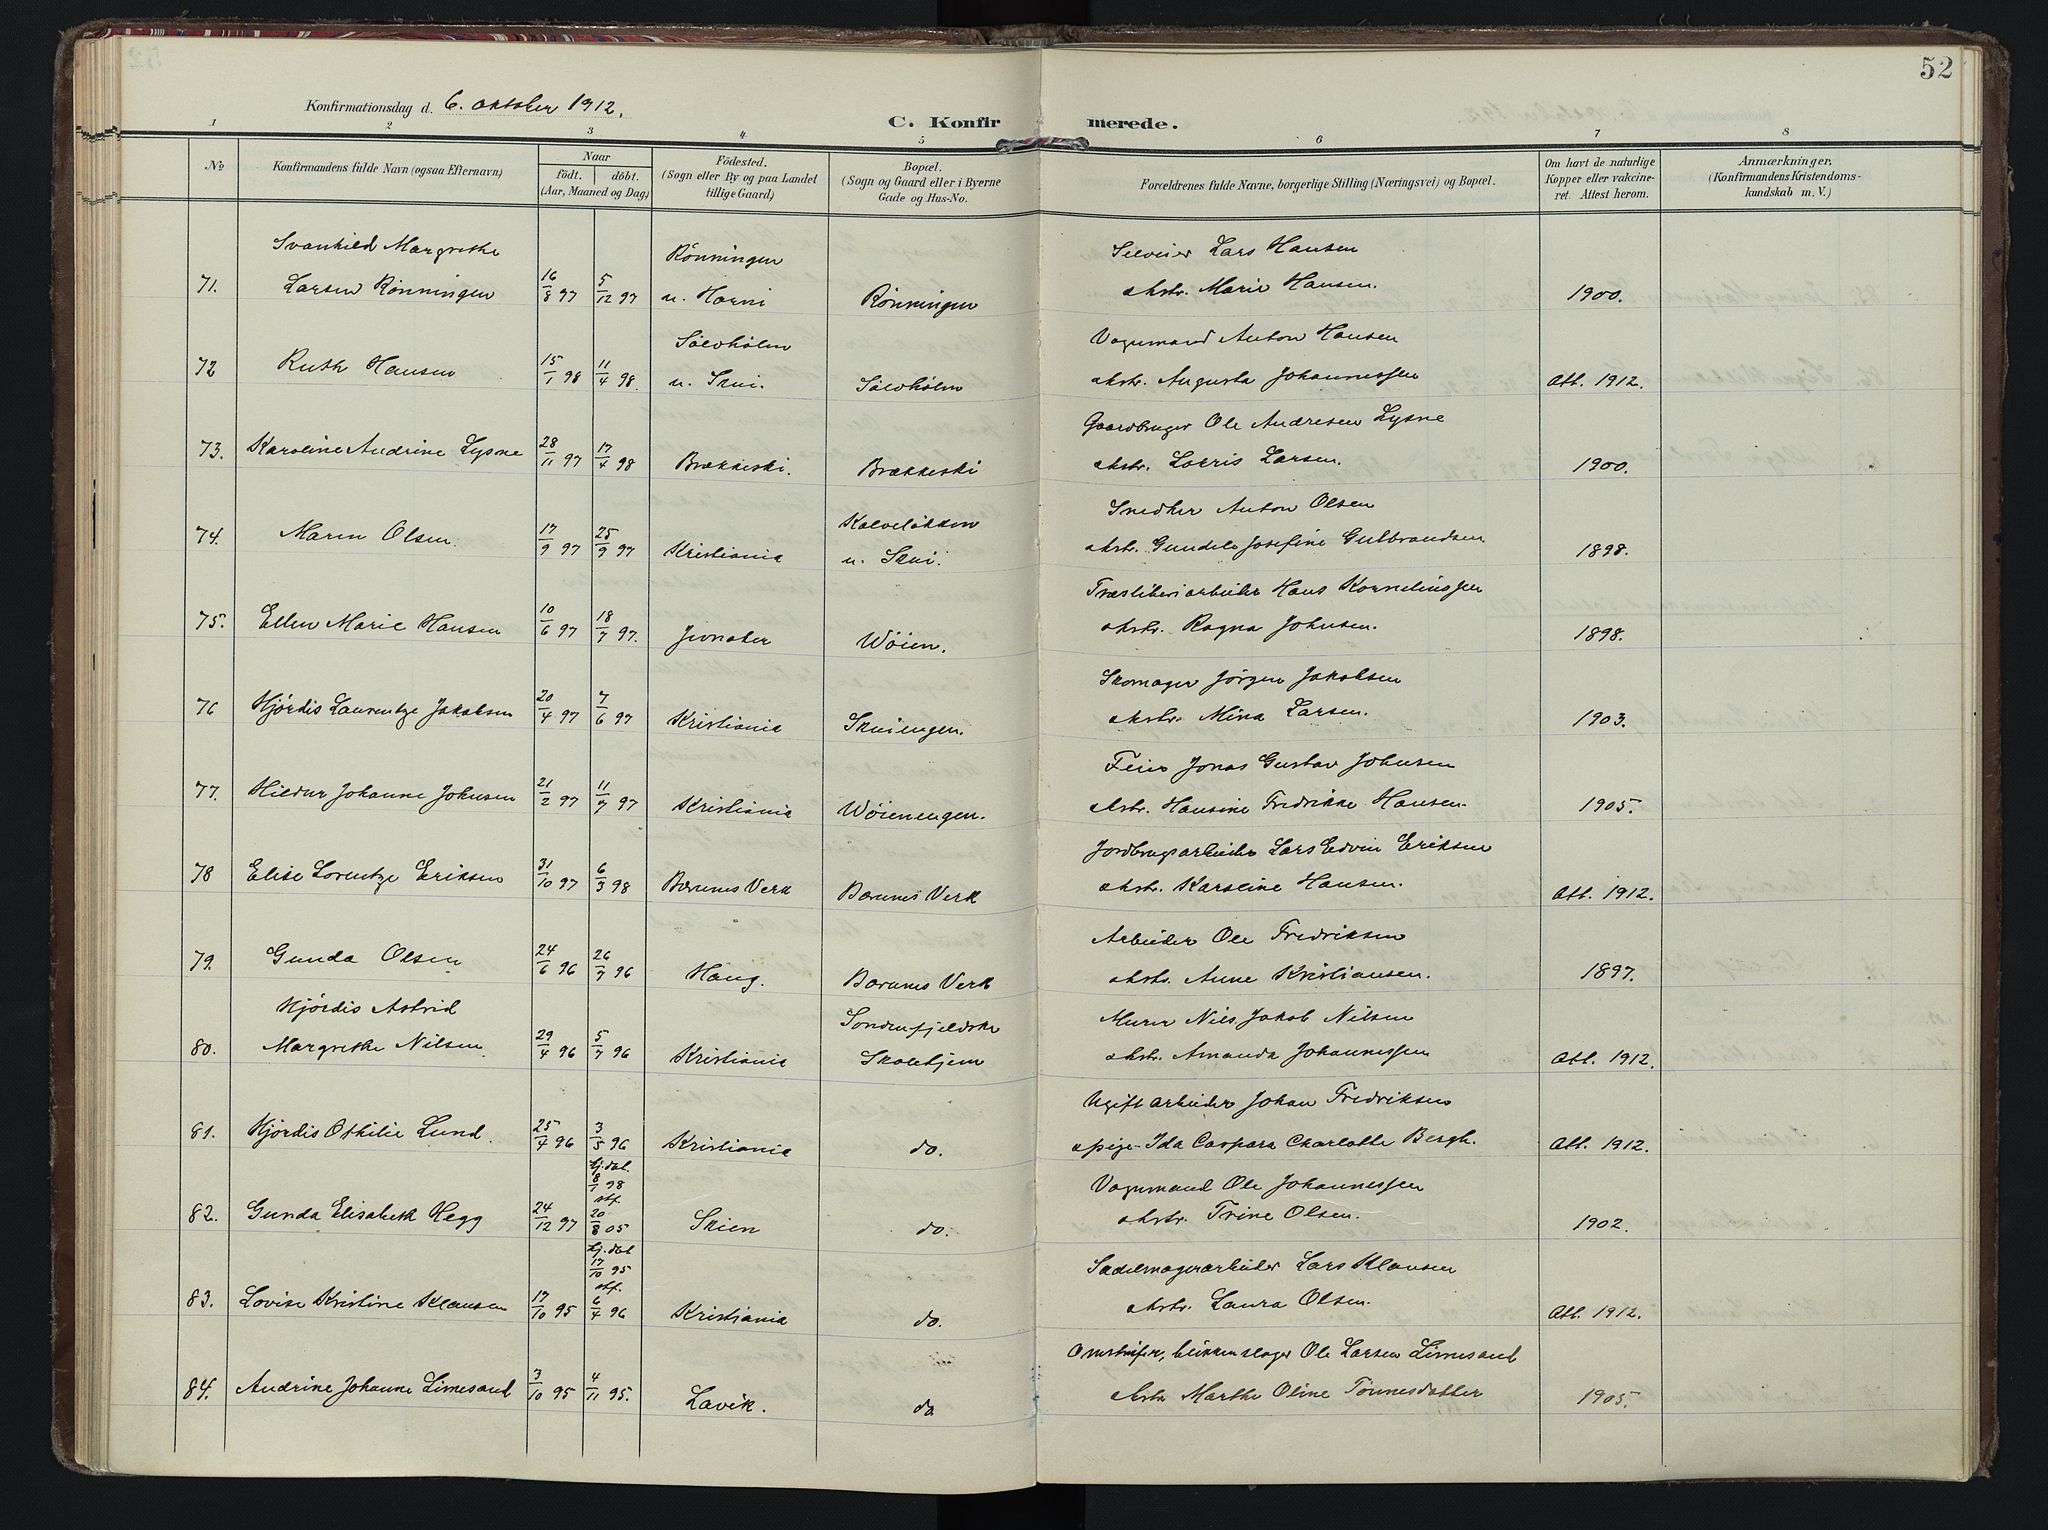 52
Konfirmationsdag d. 6. oktober 1912.
C. Konfirmerede.
1 2 3 4 5 6 7 8
No Konfirmandens fulde Navn (ogsaa Efternavn) Naar født. døbt. (Aar, Maaned og Dag) Födested. (Sogn eller By og paa Landet tillige Gaard) Bopæl. (Sogn og Gaard eller i Byerne Gade og Hus-No. Forældrenes fulde Navne, borgerlige Stilling (Næringsvei) og Bopæl. Om havt de naturlige Kopper eller vakcineret. Attest herom. Anmærkninger. (Konfirmandens Kristendomskundskab m. V.)
Svanhild Margrethe Rønningen Lars Hansen
71. Larsen Rønningen 16/8 97 5/12 97 u. Horni Rønningen Marie Hansen. 1900.
Sölvhölen Vognmand Anton Hansen
72 Ruth Hansen 15/1 98 11/4 98. u. Skui. Sölvhölen Augusta Johannessen Att. 1912.
Gaardbruger Ole Andresen Lysne
73. Karoline Andrine Lysne 28/11 97 17/4 98 Brækkeski. Brækkeski Lovris Larsen. 1900.
Kalveløkken Snedker Anton Olsen
74. Maren Olsen. 17/9 97 25/9 97 Kristiania u. Skui. Josefine Gulbrandsen 1898.
Træsliberiarbeider Hans Kornelinssen
75. Ellen Marie Hansen 10/6 97 18/7 97. Jevnaker Wöien. Ragna Johnsen. 1898.
Skomager Jørgen Jakobsen
76 Hjördis Laurentze Jakobsen 20/4 97 7/6 97 Kristiania Skuiengen. Mina Larsen. 1903.
Feier Jonas Gustav Johnsen
77. Hildur Johanne Johnsen 21/2 97 11/7 97 Kristiania Wöienengen. Hansine Fredrikke Hansen. 1905.
Jordbrugsarbeider Lars Edvin Eriksen
78 Elise Lorentze Eriksen 31/10 97 6/3 98 Bærums Verk Bærums Verk Karoline Hansen. Att. 1912.
Arbeider Ole Fredriksen
79. Gunda Olsen 24/6 96 26/7 96 Haug. Bærums Verk Anne Kristiansen. 1897.
Hjördis Astrid Söndenfjeldske Murer Nils Jakob Nilsen
80. Margrethe Nilsen 29/4 96 5/7 96 Kristiania Skolehjem Amanda Johannessen Att. 1912.
Ugift arbeider Johan Fredriksen
81. Hjördis Othilie Lund. 25/4 96 3/5 96 Kristiania do. Ida Caspara Charlotte Bergh. Att. 1912.
hj. döbt. 8/1 98 stf. Vognmand Ole Johannessen
82. Gunda Elisabeth Hegg 24/12 97 20/8 05 Skien do. Trine Olsen. 1902.
hj. döbt 17/10 95 stf. Sadelmagerarbeider Lars Klausen
83. Lovise Kristine Klausen 17/10 95 6/4 96 Kristiania do. Laura Olsen. Att. 1912.
Omstreifer, blikkenslager Ole Larsen Limesand
84. Andrine Johanne Limesand 3/10 95 4/11 95. Lavik. do. Marthe Oline Tönnesdatter 1905.